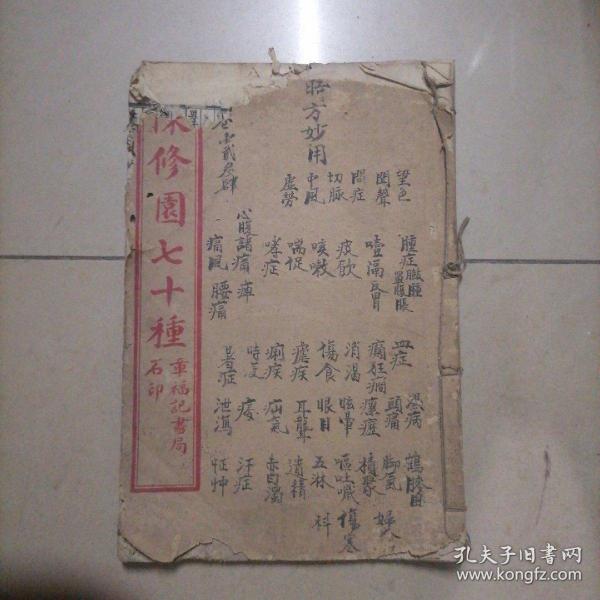 修園七十種
章福記書局
石印
方妙用
望色
聞聲
問症
切脉
中風
虛勞
腫症
噎膈反胃
痰飲
咳嗽
喘促
哮症
心腹諸痛 痺
痛風 腰痛
血症
癲狂癇
消渴
傷食
瘧疾
痢疾
時疫
暑症
頭痛
眩暈
眼目
耳聾
疝氣
痿
泄瀉
鶴膝
脚氣
積聚
嘔吐
五淋
遺精
赤白濁
汗症
怔忡
婦人
傷寒
科
孔夫子旧书网
www.kongfz.com